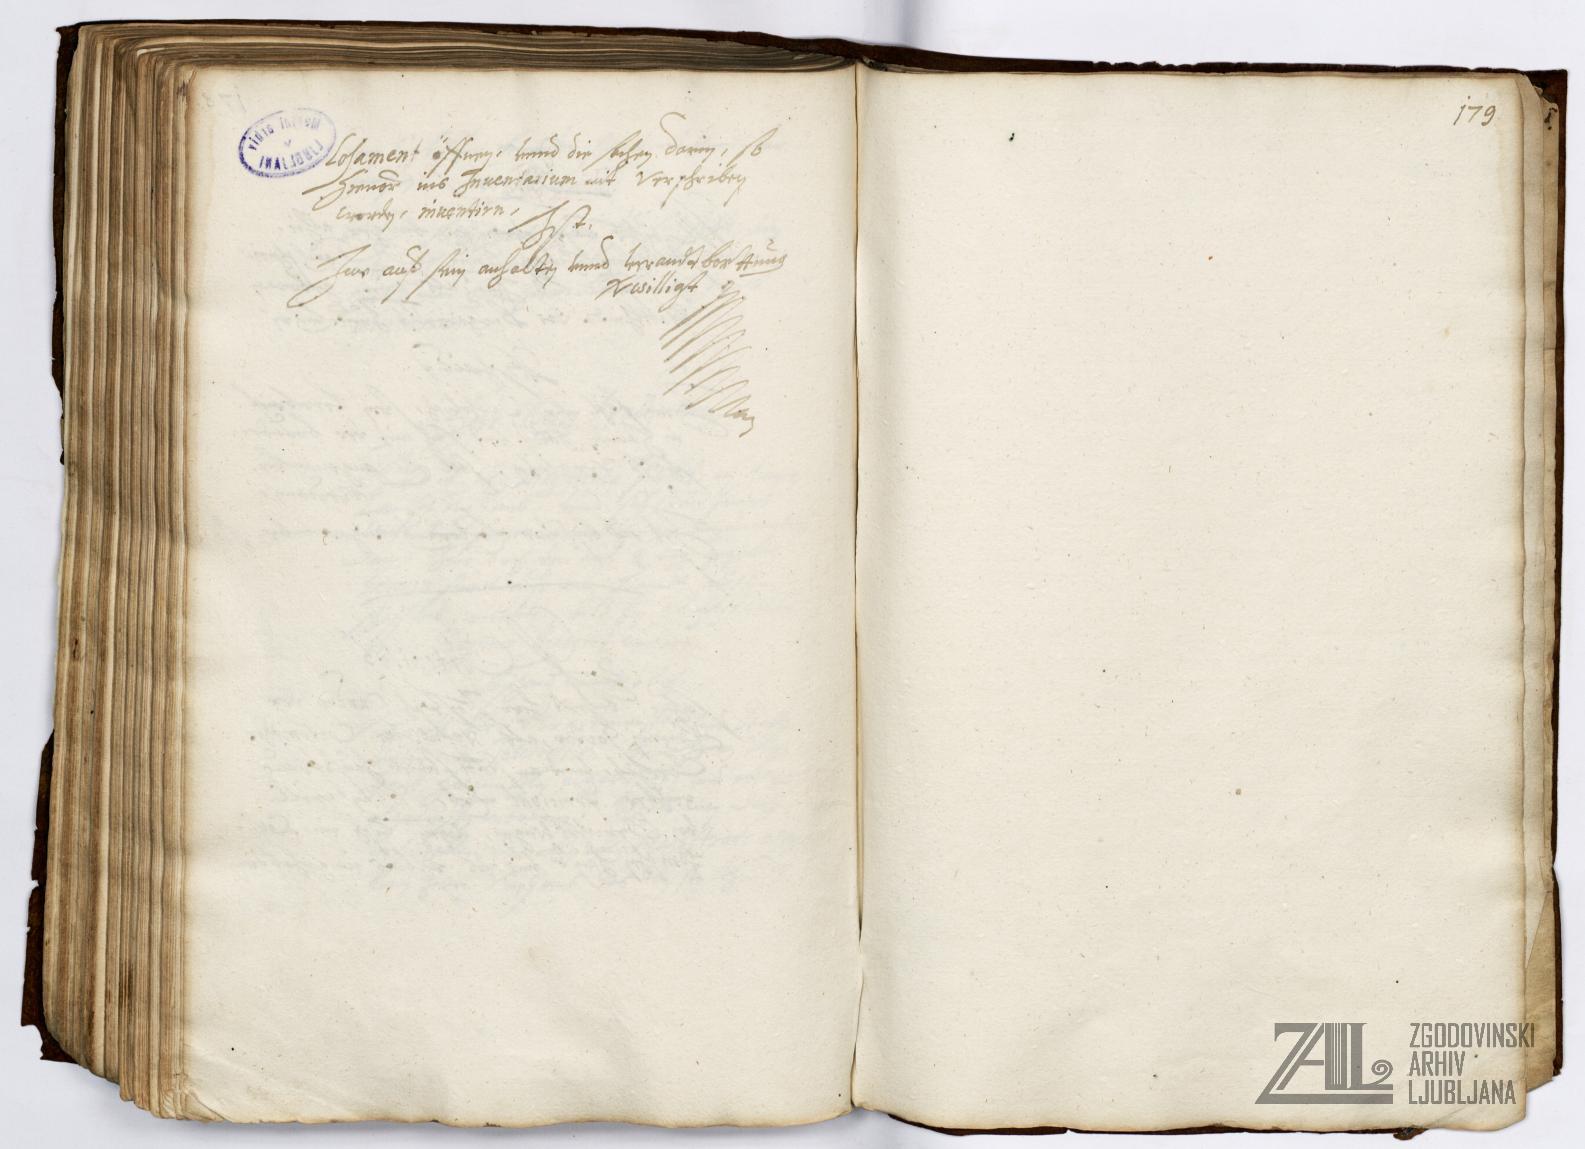 Mestni arhiv
v
LJUBLJANI
Losament öffnen, vnnd die sachen darin, so
hieuor ins Inuentarium nit verschriben
worden, inuentirn,
Ist
Ime auf sein anhalten vnnd verantwortung
bewilligt
179
ZAL ZGODOVINSKI
ARHIV
LJUBLJANA